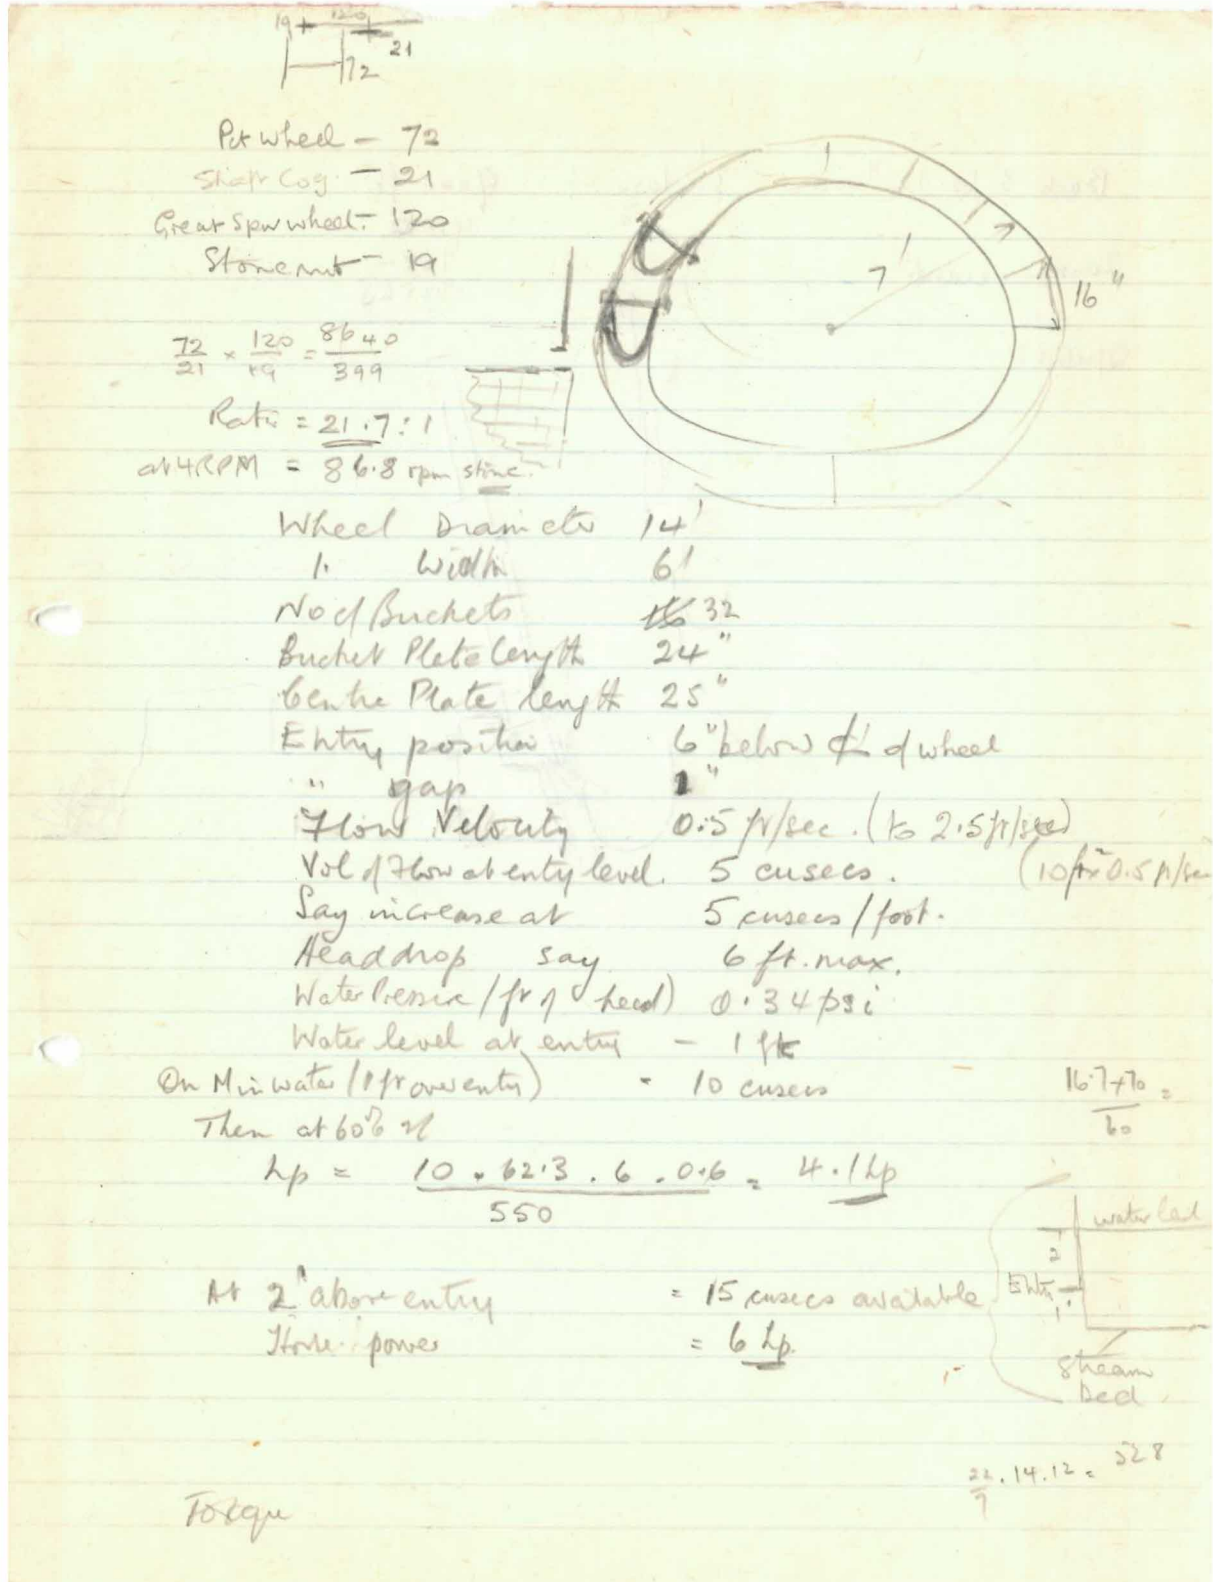 19 120
21
72
Pit wheel - 72
Shaft Cog. - 21
Great Spur wheel - 120
Stone nut - 19
7'
16"
72/21 × 120/19 = 8640/399
Ratio = 21.7:1
at 4 RPM = 86.8 rpm stone.
Wheel Diameter 14'
" Width 6'
No of Buckets 32
Bucket Plate length 24"
Centre Plate length 25"
Entry position 6" below ℄ of wheel
" gap 1"
Flow Velocity 0.5 ft/sec. (to 2.5 ft/sec)
Vol of Flow at entry level. 5 cusecs. (10ft² × 0.5 ft/sec
Say increase at 5 cusecs/foot.
Head drop say 6 ft. max.
Water Pressure/ft of head) 0.34 psi
Water level at entry - 1 ft
On Min water (1 ft over entry) - 10 cusecs
16.7+70 =
60
Then at 60%
hp = 10 . 62.3 . 6 . 0.6 = 4.1 hp
550
water level
2'
Entry
1'
stream
bed
At 2' above entry = 15 cusecs available
Horse power = 6 hp.
22/7 . 14 . 12 = 528
Torque